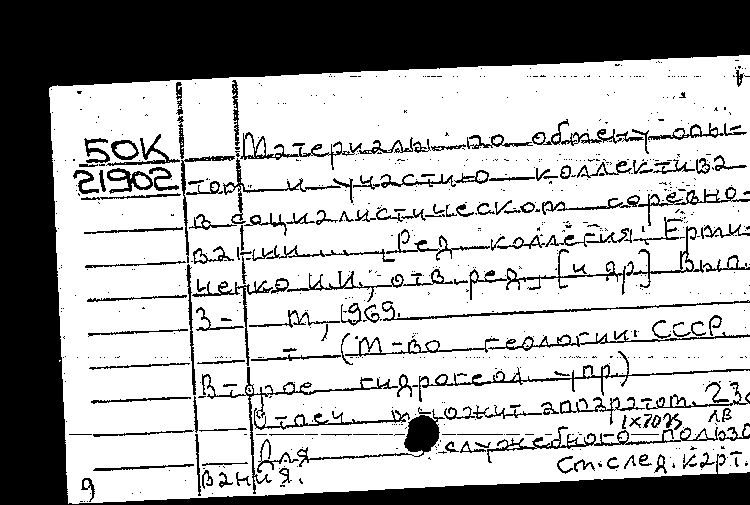 50К
21902
Материалы по обмену опы-
том и участию коллектива
в социалистическом соревно-
вании... [Ред. коллегия: Ерми-
ченко И.И., отв. ред., [и др.] Вып.
3- М, 1969.
- (М-во геологии СССР.
Второе гидрогеол. упр.)
Отпеч. множит. аппаратом. 23с
1х70 лв
Для служебного пользо-
вания. См. след. карт.
9